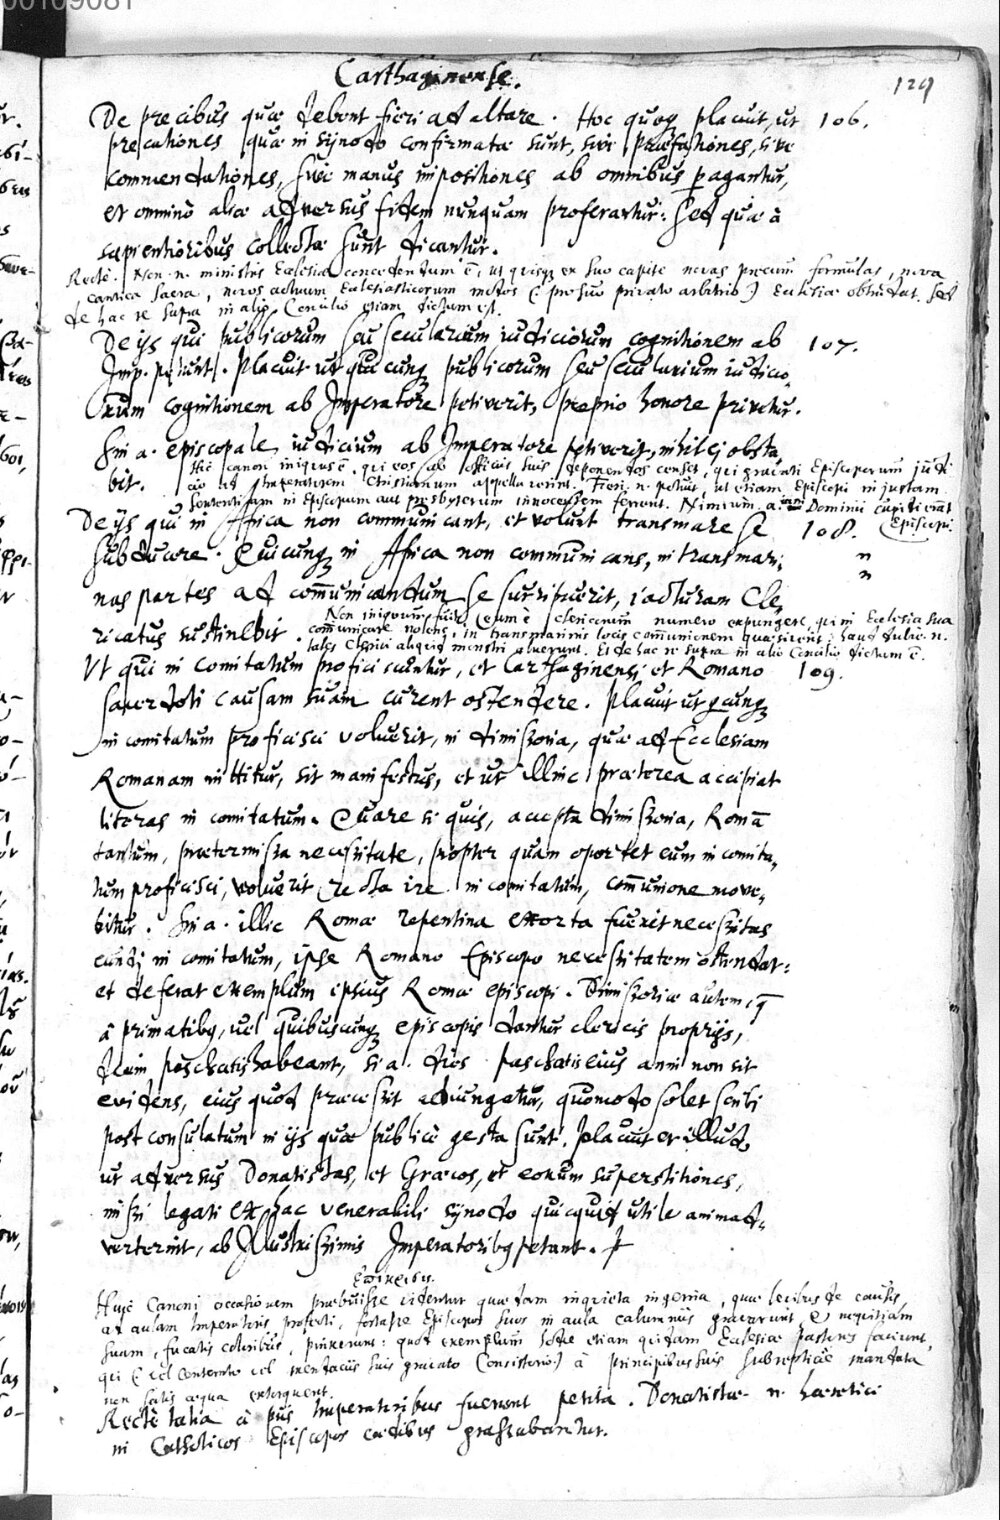 00109081
Carthaginense.
129
De precibus quæ debent fieri ad altare. Hoc quoq placuit, ut 106.
precationes quæ in synodo confirmatæ sunt, sive præfationes, sive
commendationes, sive manus impositiones ab omnibus peragantur,
et omninò aliæ adversus fidem nunquam proferantur: sed quæ à
sapientioribus collectæ sunt dicantur.
Rectè. Non .n. ministris Ecclesiæ concedendum ē, ut quisq ex suo capite novas precum formulas, nova
cantica sacra, novos actuum Ecclesiasticorum motus (pro suo privato arbitrio) Ecclesiæ obtrudat. Sed
de hac re supra in alio Concilio etiam dictum est.
De ijs qui publicorum seu secularium iudiciorum cognitionem ab 107.
Imp. petiunt. Placuit ut quicunq publicorum seu secularium iudicio,
rum cognitionem ab Imperatore petiverit, proprio honore privetur.
Sin a. episcopale iudicium ab Imperatore petiverit, nihil ei obsta,
bit.
Hic canon iniquus ē, qui eos ab officiis suis deponendos censet, qui gravati Episcoporum judi
cio ad Imperatorem Christianum appellaverint. Fieri .n. potuit, ut etiam Episcopi injustam
sententiam in Episcopum aut presbyterum innocentem ferrent. Nimirum a. Domini
Episcopi.
De ijs qui in Africa non communicant, et volunt transmare se 108.
subducere. Quicunq in Africa non communicans, in transmari,
nas partes ad com̄unicandum se surripuerit, iacturam Cle,
ricatus sustinebit.
Non iniquum fuit, eum è clericorum numero expungere, qui in Ecclesia sua
communicare nolens, in transmarinis locis com̄unionem quæsivent: haud dubie .n.
tales Clerici aliquid monstri aluerunt. Et de hac re supra in alio Concilio dictum ē.
Ut qui in comitatum proficiscuntur, et Carthaginensi et Romano 109.
sacerdoti causam suam curent ostendere. Placuit ut qcunq
in comitatum proficisci voluerit, in dimissoria, quæ ad Ecclesiam
Romanam mittitur, sit manifestus, et ut illinc præterea accipiat
literas in comitatum. Quare si quis, accepta dimissoria, Romā
tantum, prætermissa necessitate, propter quam oportet eum in comita,
tum proficisci, voluerit recta ire in comitatum, com̄unione move,
bitur. Sin a. illic Romæ repentina exorta fuerit necessitas
eundi in comitatum, ipse Romano Episcopo necessitatem ostendat:
et deferat exemplum ipsius Romæ episcopi. Dimissoriæ autem, q̄
à primatibq, vel quibuscunq episcopis dantur clericis proprijs,
diem paschatis habeant, si a. dies paschatis eius anni non sit
evidens, eius quod præcessit adiungatur, quomodo solet scribi
post consulatum in ijs quæ publicè gesta sunt. Placuit et illud,
ut adversus Donatistas, et Græcos, et eorum superstitiones,
missi legati ex hac venerabili synodo quicquid utile animad,
verterint, ab Illustrissimis Imperatoribq petant.
Επίκρισις.
Huic Canoni occasionem præbuisse videntur quædam inquieta ingenia, quæ levibus de causis
ad aulam Imperatoris profecti, fortasse Episcopos suos in aula calumniis gravarunt, & nequitiam
suam, fucatis coloribus, pinxerunt: quod exemplum hodie etiam quidam Ecclesiæ Pastores faciunt,
qui (vel contempto vel mendaciis suis gravato Consistorio) à principibus suis subreptitiè mandata
non satis æqua extorquent.
Rectè talia à piis Imperatoribus fuerunt petita. Donatistæ .n. hæretici
in Catholicos Episcopos cædibus grassabantur.